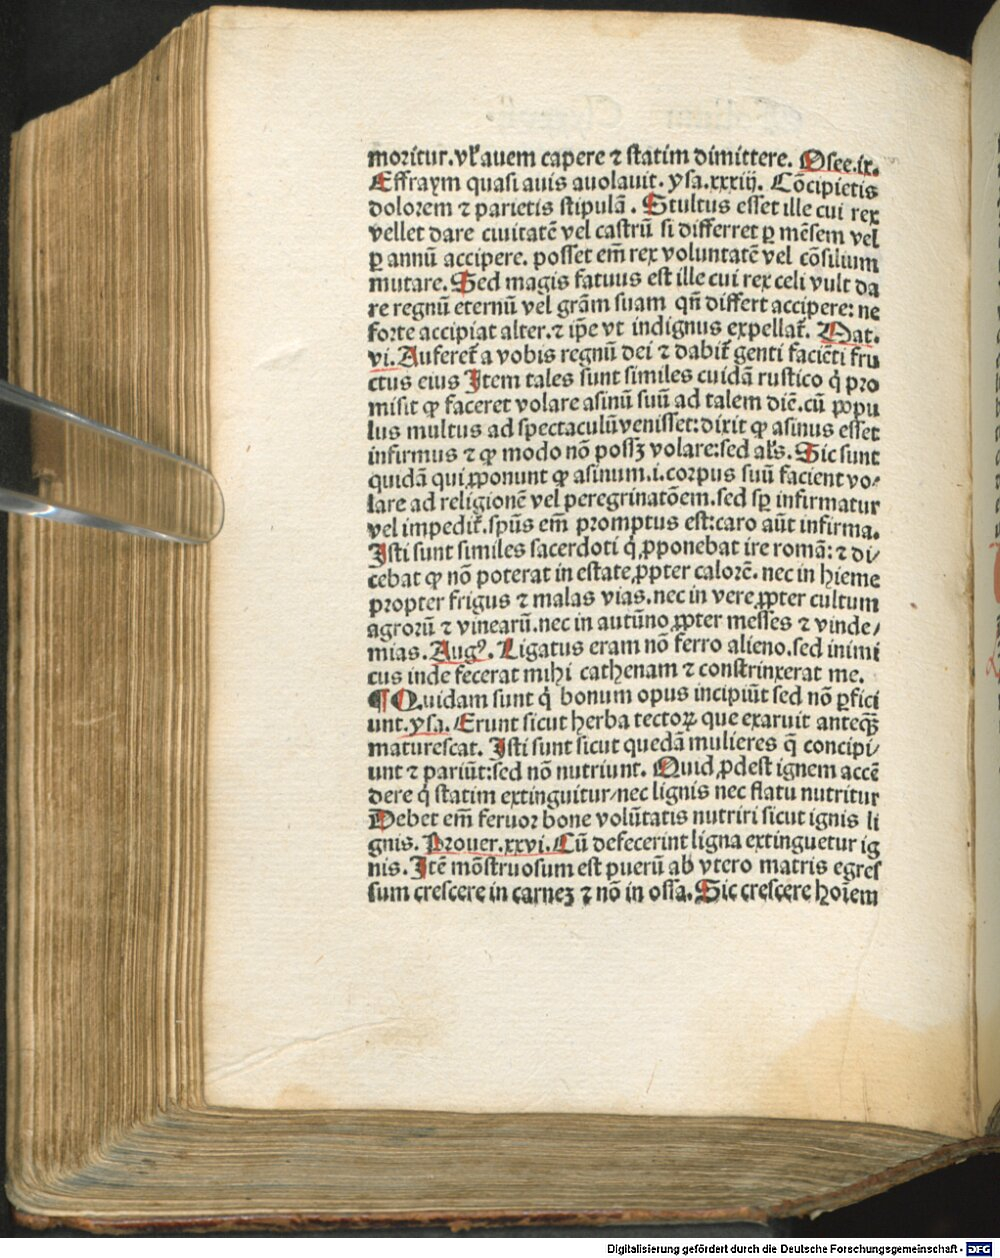 moritur.vl̄ auem capere ⁊ statim dimittere. Osee.ix.
Effraym quasi auis auolauit. ysa.xxxiij. Cōcipietis
dolorem ⁊ parietis stipulā. Stultus esset ille cui rex
vellet dare ciuitatē vel castrū si differret ꝑ mēsem vel
ꝑ annū accipere. posset em̄ rex voluntatē vel cōsilium
mutare. Sed magis fatuus est ille cui rex celi vult da
re regnū eternū vel grām suam qn̄ differt accipere: ne
forte accipiat alter.⁊ ip̄e vt indignus expellat᷑. Mat.
vi. Auferet᷑ a vobis regnū dei ⁊ dabit᷑ genti faciēti fru
ctus eius Item tales sunt similes cuidā rustico q̇ pro
misit ꝙ faceret volare asinū suū ad talem diē.cū ꝓpu
lus multus ad spectaculū venisset:dixit ꝙ asinus esset
infirmus ⁊ ꝙ modo nō possꝫ volare:sed al̄s. Sic sunt
quidā qui ꝓponunt ꝙ asinum.i.corpus suū facient vo⸗
lare ad religionē vel peregrinatōem.sed sꝑ infirmatur
vel impedit᷑.sp̄us em̄ promptus est:caro aūt infirma.
Isti sunt similes sacerdoti q̇ ꝓponebat ire romā: ⁊ di/
cebat ꝙ nō poterat in estate ꝓpter calorē. nec in hieme
propter frigus ⁊ malas vias.nec in vere ꝓpter cultum
agrorū ⁊ vinearū.nec in autūno ꝓpter messes ⁊ vinde/
mias. Augꝰ. Ligatus eram nō ferro alieno.sed inimi
cus inde fecerat mihi cathenam ⁊ constrinxerat me.
¶ Quidam sunt q̇ bonum opus incipiūt sed nō ꝑfici
unt.ysa. Erunt sicut herba tectoꝝ que exaruit anteqꝫ̄
maturescat. Isti sunt sicut quedā mulieres q̄ concipi/
unt ⁊ pariūt:sed nō nutriunt. Quid ꝓdest ignem accē
dere q̇ statim extinguitur/nec lignis nec flatu nutritur
Debet em̄ feruor bone volūtatis nutriri sicut ignis li
gnis. Prouer.xxvi. Cū defecerint ligna extinguetur ig
nis. Itē mōstruosum est puerū ab vtero matris egres
sum crescere in carneꝫ ⁊ nō in ossa. Sic crescere hoīem
Digitalisierung gefördert durch die Deutsche Forschungsgemeinschaft - DFG